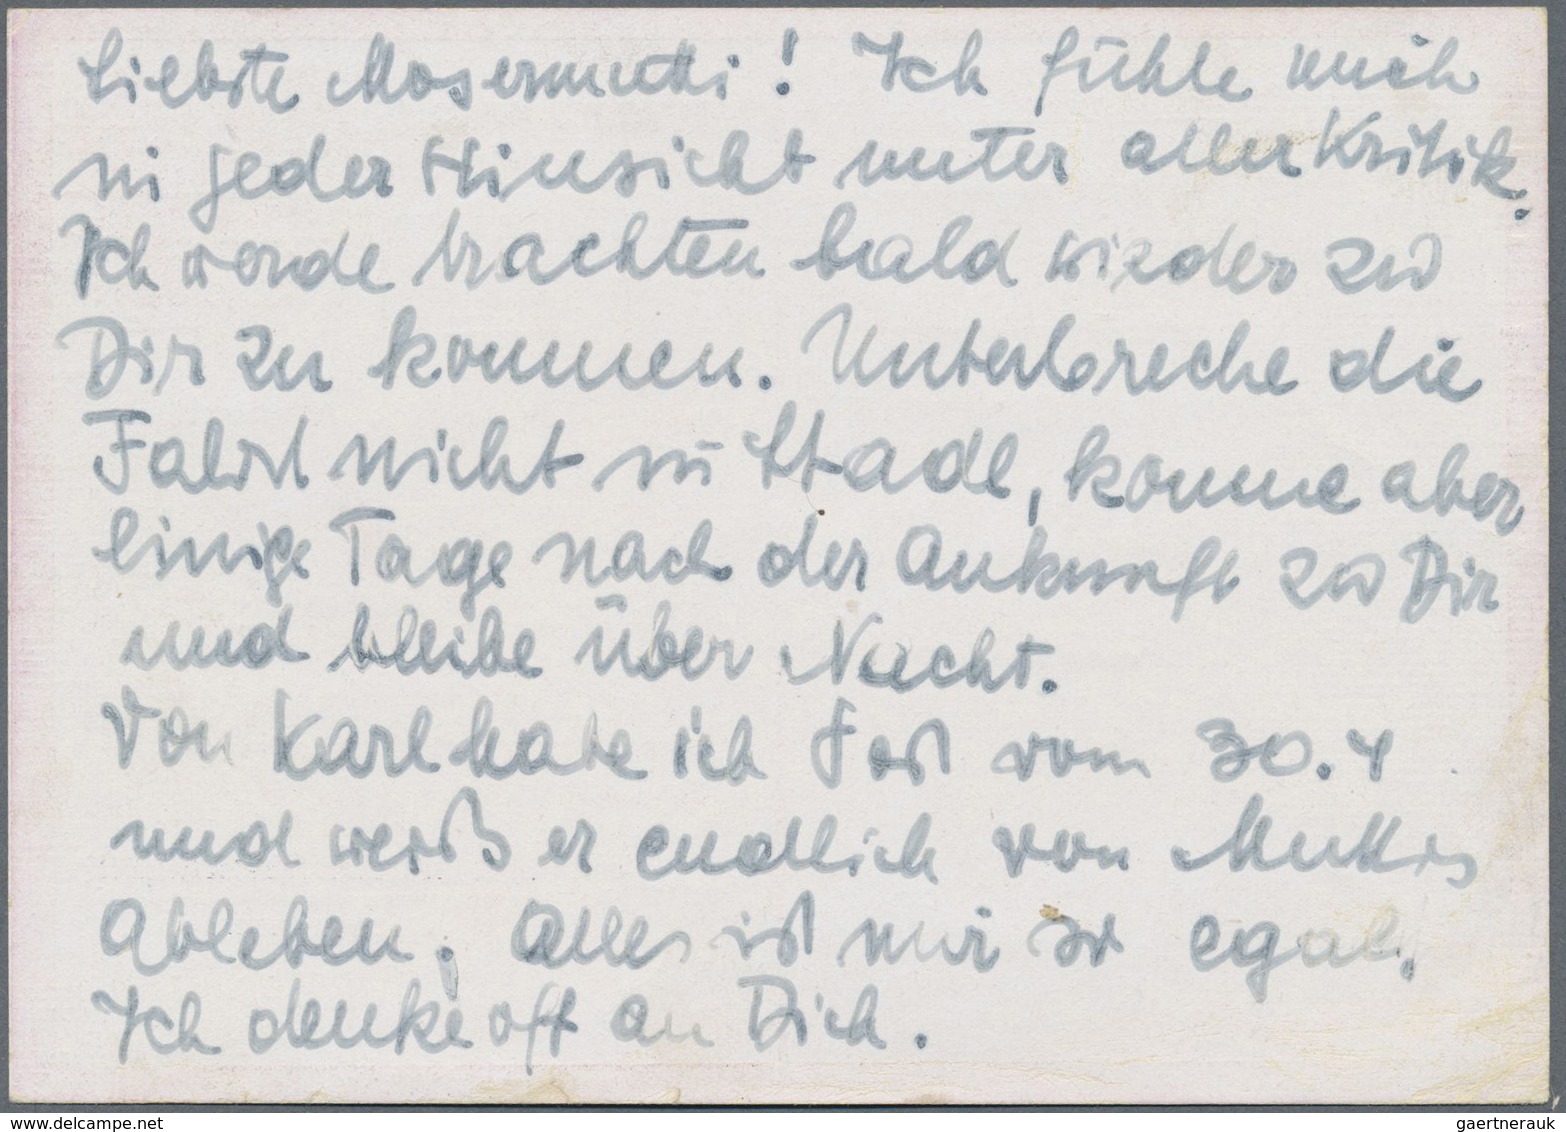 Liebste Mosermutti! Ich fühle mich
in jeder Hinsicht unter aller Kritik.
Ich werde trachten bald wieder zu
Dir zu kommen. Unterbreche die
Fahrt nicht in Stadl, komme aber
einige Tage nach der Ankunft zu Dir
und bleibe über Nacht.
Von Karl habe ich Post vom 30.4
und weiß er endlich von Muttis
Ableben. Alles ist mir so egal.
Ich denke oft an Dich.
gaertnerauk @ delcampe.net